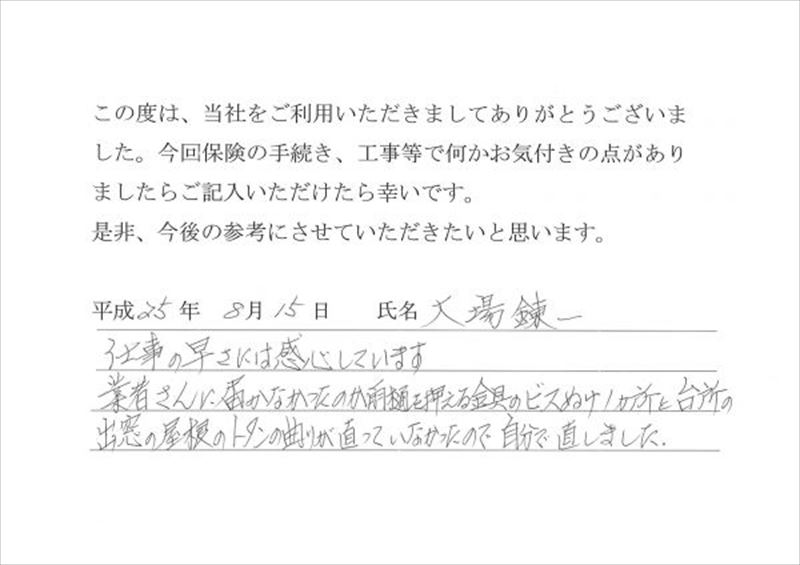 この度は、当社をご利用いただきましてありがとうございま
した。今回保険の手続き、工事等で何かお気付きの点があり
ましたらご記入いただけたら幸いです。
是非、今後の参考にさせていただきたいと思います。
平成25年 8月15日 氏名 大場錬一
仕事の早さには感心しています
業者さんに届かなかったのか雨樋を押える金具のビスぬけ1カ所と台所の
出窓の屋根のトタンの曲りが直っていなかったので自分で直しました.